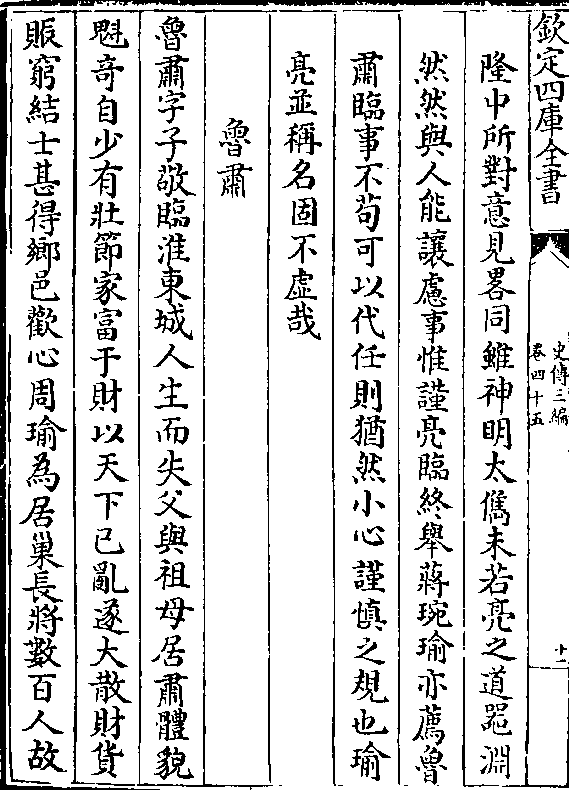 欽定四庫全書
史傳三編
卷四十五
十一
隆中所對意見畧同雖神明太儁未若亮之道器淵
然然與人能讓慮事惟謹亮臨終舉蔣琬瑜亦薦魯
肅臨事不苟可以代任則猶然小心謹慎之規也瑜
亮並稱名固不虛哉
魯肅
魯肅字子敬臨淮東城人生而失父與祖母居肅體貌
魁奇自少有壯節家富于財以天下已亂遂大散財貨
賑窮結士甚得鄉邑歡心周瑜為居巢長將數百人故